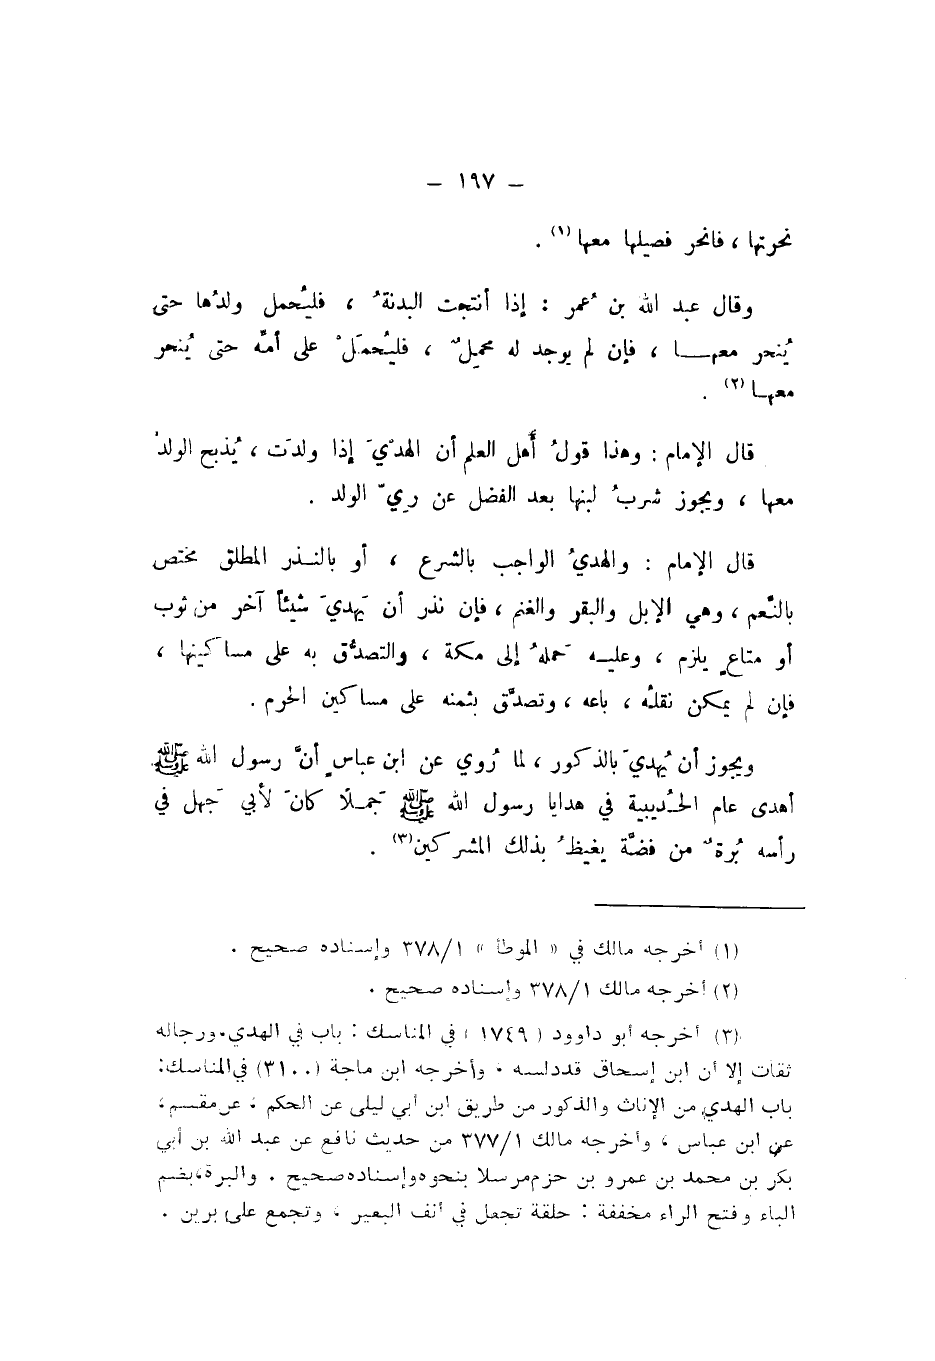 – ١٩٧ –
نحرتها ، فانحر فصيلها معها (١) .
وقال عبد الله بن عُمر : إذا أنتجت البدنةُ ، فليُحمل ولدُها حتى
يُنحر معهـــا ، فإن لم يوجد له محمِلٌ ، فليُحمَلْ على أمّه حتى يُنحر
معهـا (٢) .
قال الإمام : وهذا قولُ أهل العلم أن الهدْيَ إذا ولدَت ، يُذبح الولدُ
معها ، ويجوز شربُ لبنها بعد الفضل عن رِيِّ الولد .
قال الإمام : والهديُ الواجب بالشرع ، أو بالنـذر المطلق مختص
بالنَّعم ، وهي الإبل والبقر والغنم ، فإن نذر أن يَهديَ شيئاً آخر من ثوب
أو متاعٍ يلزم ، وعليـه حَملهُ إلى مكة ، والتصدُّق به على مساكينها ،
فإن لم يمكن نقلُه ، باعه ، وتصدَّق بثمنه على مساكين الحرم .
ويجوز أن يُهديَ بالذكور ، لما رُوي عن ابن عباسٍ أنَّ رسول الله ﷺ
أهدى عام الحُـديبية في هدايا رسول الله ﷺ جَمـلًا كانَ لأبي جَهل في
رأسه بُرةٌ من فضَّة يغيظُ بذلك المشركين(٣) .
(١) أخرجه مالك في « الموطأ » ٣٧٨/١ وإسناده صحيح .
(٢) أخرجه مالك ٣٧٨/١ وإسناده صحيح .
(٣) أخرجه أبو داوود ( ١٧٤٩ ) في المناسك : باب في الهدي.ورجاله
ثقات إلا أن ابن إسحاق قددلسه . وأخرجه ابن ماجة (٣١٠٠) في المناسك:
باب الهدي من الإناث والذكور من طريق ابن أبي ليلى عن الحكم ، عن مقسم،
عن ابن عباس ، وأخرجه مالك ٣٧٧/١ من حديث نافع عن عبد الله بن أبي
بكر بن محمد بن عمرو بن حزم مرسلا بنحوه وإسناده صحيح . والبرة،بضم
الباء وفتح الراء مخففة : حلقة تجعل في أنف البعير ، وتجمع على برين .